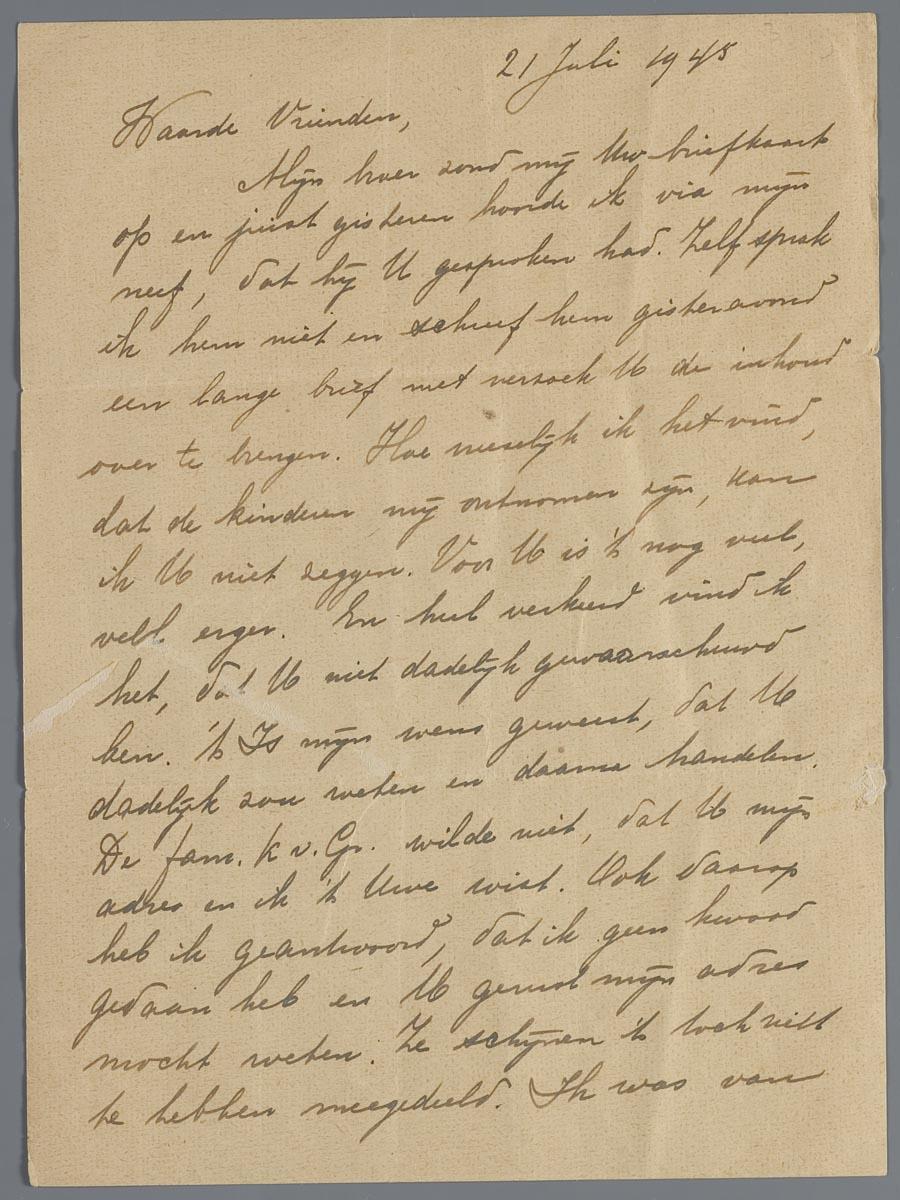 21 Juli 1945
Waarde Vrienden,
Mijn broer zond mij Uw briefkaart
op en juist gisteren hoorde ik via mijn
neef, dat hij U gesproken had. Zelf sprak
ik hem niet en schreef hem gisteravond
een lange brief met verzoek U de inhoud
over te brengen. Hoe vreselijk ik het vind,
dat de kinderen mij ontnomen zijn, kan
ik U niet zeggen. Voor U is 't nog veel,
veel erger. En heel verkeerd vind ik
het, dat U niet dadelijk gewaarschuwd
ben. 't Is mijn wens geweest, dat U
dadelijk zou weten en daarna handelen.
De fam. K v. Gr. wilde niet, dat U mijn
adres en ik 't Uwe wist. Ook daarop
heb ik geantwoord, dat ik geen kwaad
gedaan heb en U gerust mijn adres
mocht weten. Ze schijnen 't toch niet
te hebben meegedeeld. Ik was van